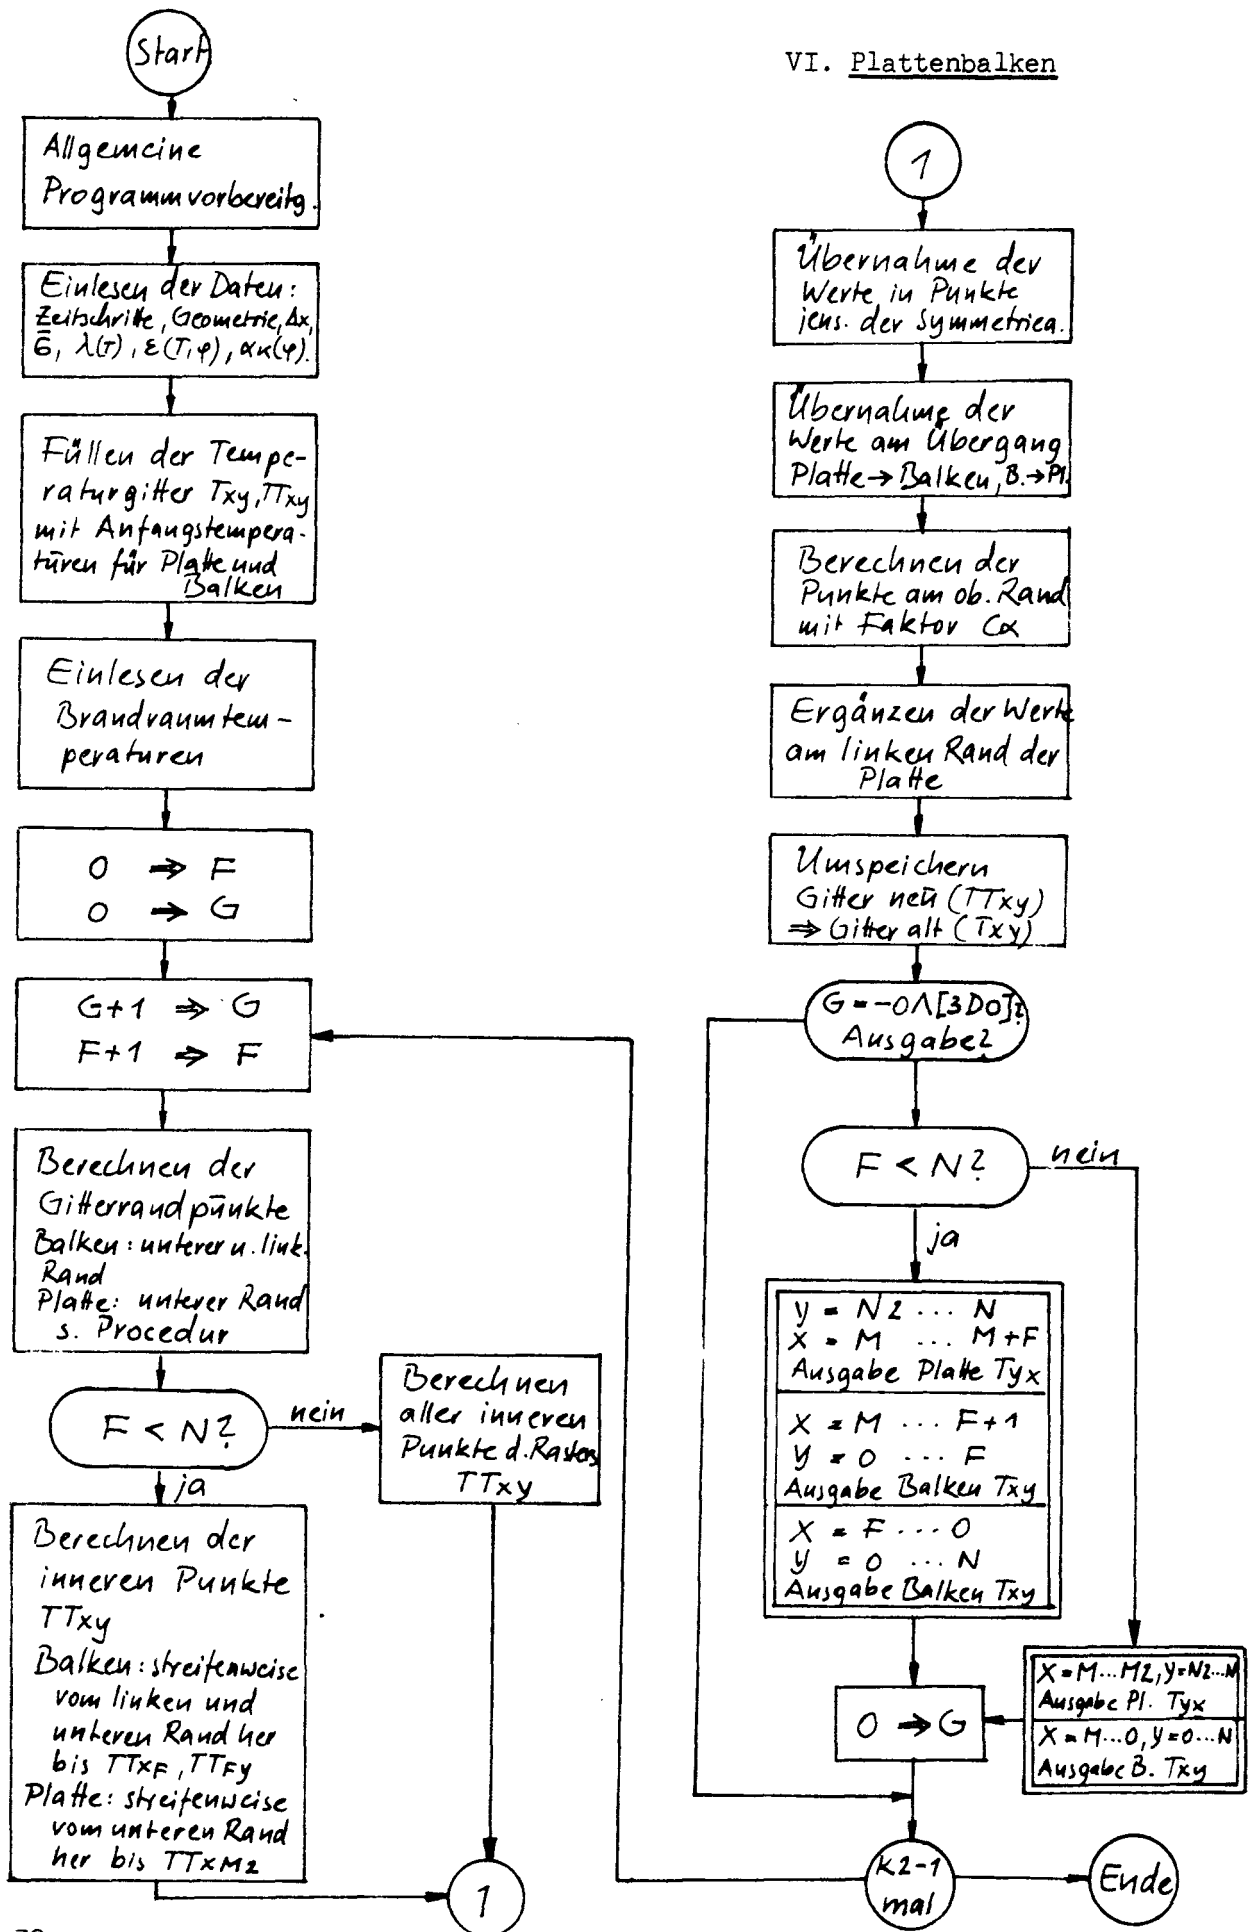 VI. Plattenbalken
Start
Allgemeine
Programmvorbereitg.
Einlesen der Daten:
Zeitschritte, Geometrie, Δx,
λ(T), ε(T,φ), ακ(φ).
Füllen der Tempe-
raturgitter Txy, TTxy
mit Anfangstempera-
türen für Platte und
Balken
Einlesen der
Brandraumtem-
peraturen
0 ⇒ F
0 ⇒ G
G+1 ⇒ G
F+1 ⇒ F
Berechnen der
Gitterrandpünkte
Balken: unterer u. link.
Rand
Platte: unterer Rand
s. Procedur
F < N?
nein
ja
Berechnen
aller inneren
Punkte d. Rasters
TTxy
Berechnen der
inneren Punkte
TTxy
Balken: streifenweise
vom linken und
unteren Rand her
bis TTxF, TTFy
Platte: streifenweise
vom unteren Rand
her bis TTxM2
1
1
Übernahme der
Werte in Punkte
jens. der Symmetriea.
Übernahme der
Werte am Übergang
Platte → Balken, B. → Pl.
Berechnen der
Punkte am ob. Rand
mit Faktor Cα
Ergänzen der Werte
am linken Rand der
Platte
Umspeichern
Gitter neü (TTxy)
⇒ Gitter alt (Txy)
G = -0 Λ [3D0]?
Ausgabe?
F < N?
nein
ja
y = N2 ... N
X = M ... M+F
Ausgabe Platte Tyx
X = M ... F+1
y = 0 ... F
Ausgabe Balken Txy
X = F ... 0
y = 0 ... N
Ausgabe Balken Txy
X = M...M2, y = N2...N
Ausgabe Pl. Tyx
X = M...0, y = 0...N
Ausgabe B. Txy
0 ⇒ G
K2-1
mal
Ende